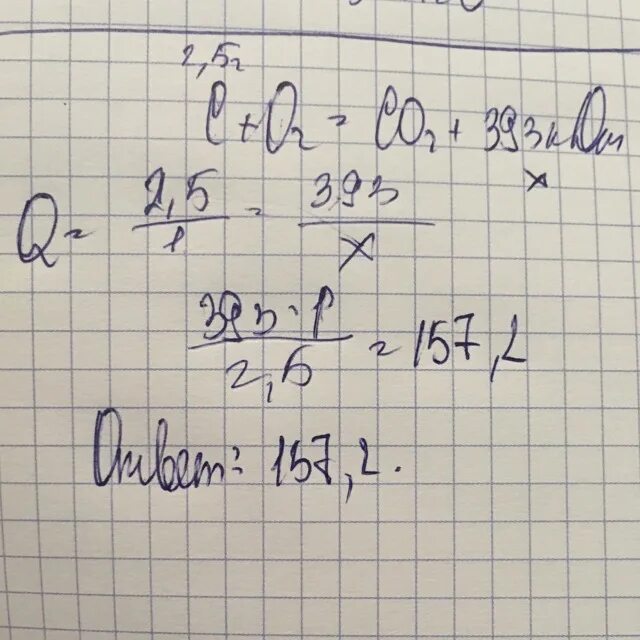 2,5г
C + O₂ = CO₂ + 393 кДж
x
Q = 2,5/1 = 393/x
393 · 1/2,5 = 157,2
Ответ: 157,2.